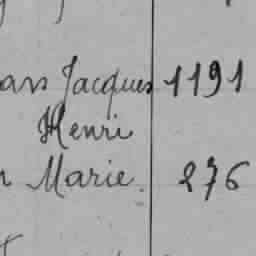 Jacques 1191
Henri
Marie. 276